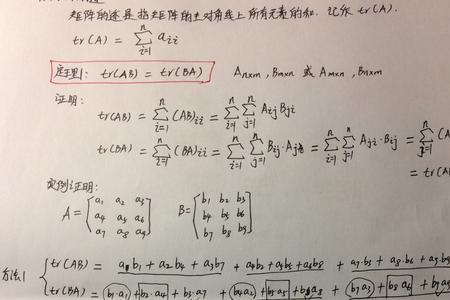 矩阵的迹是指矩阵的主对角线上所有元素的和. 记作 tr(A)
tr(A) = Σ_{i=1}^{n} a_{ii}
定理1: tr(AB) = tr(BA)  A_{n×m}, B_{m×n} 或 A_{m×n}, B_{n×m}
证明:
tr(AB) = Σ_{i=1}^{n} (AB)_{ii} = Σ_{i=1}^{n} Σ_{j=1}^{n} A_{ij} B_{ji}
tr(BA) = Σ_{i=1}^{n} (BA)_{ii} = Σ_{i=1}^{n} Σ_{j=1}^{n} B_{ij}·A_{ji} = Σ_{i=1}^{n} Σ_{j=1}^{n} A_{ji}·B_{ij} = Σ_{j=1}^{n} (A
= tr(A
实例证明:
A = [a1 a2 a3  B = [b1 b2 b3
a4 a5 a6  b4 b5 b6
a7 a8 a9]  b7 b8 b9]
方法1
tr(AB) = a1b1 + a2b4 + a3b7 + a4b2 + a5b5 + a6b8 + a7·b3 + a8·b6 + a9·b
tr(BA) = b1·a1 + b2·a4 + b3·a7 + b4a2 + b5·a5 + b6a8 + b7a3 + b8a6 + b9